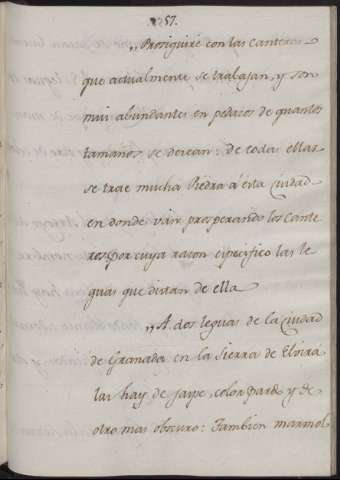 57.
„Proseguiré con las Canteras
que actualmente se trabajan, y son
mui abundantes en pedazos de quantos
tamaños se desean: de todas ellas
se trae mucha Piedra á esta Ciudad
en donde ván prosperando los Cante
ros por cuya razon especifico las le
guas que distan de ella
„A dos leguas de la Ciudad
de Granada en la Sierra de Elvira
las hay de jaspe, color pardo y de
otro mas obscuro: Tambien marmol